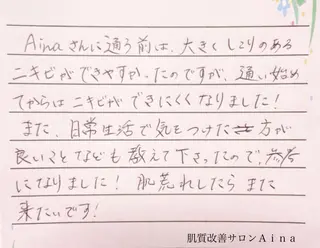 Ainaさんに通う前は、大きくしこりのある
ニキビができやすかったのですが、通い始め
てからはニキビができにくくなりました!
また、日常生活で気をつけた方が
良いことなども教えて下さったので、参考
になりました! 肌荒れしたらまた
来たいです!
肌質改善サロンAina